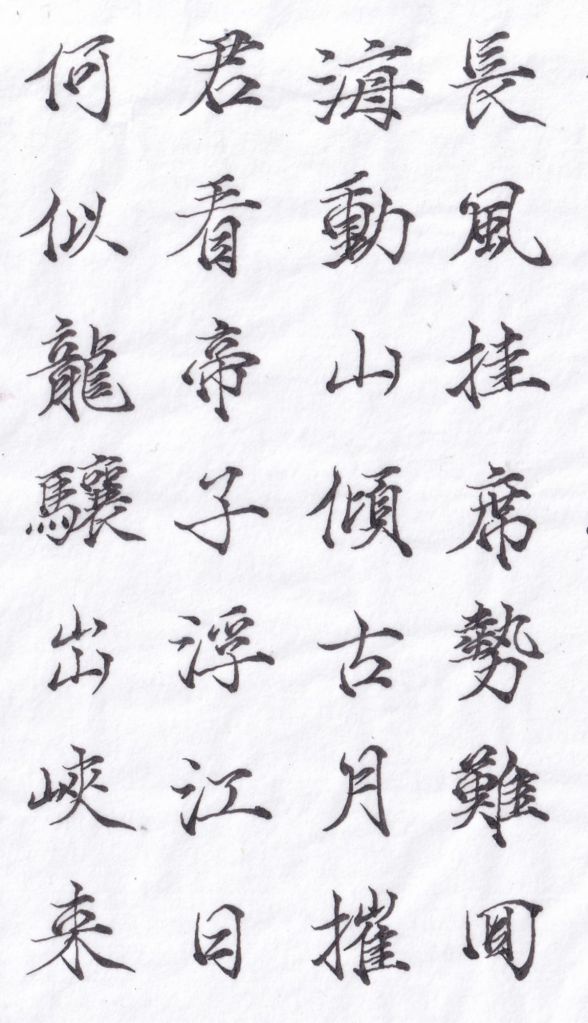 長風挂席勢難回
海動山傾古月摧
君看帝子浮江日
何似龍驤出峽來